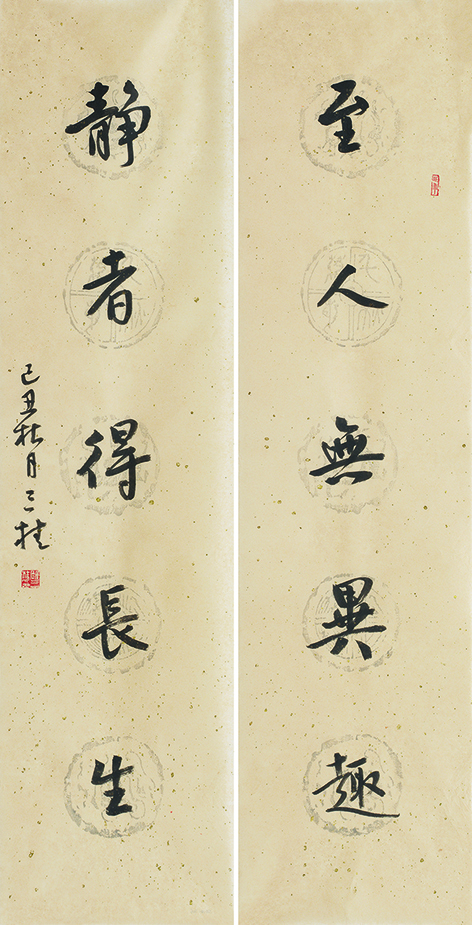 至人無異趣
静者得長生
己丑桂月三桂